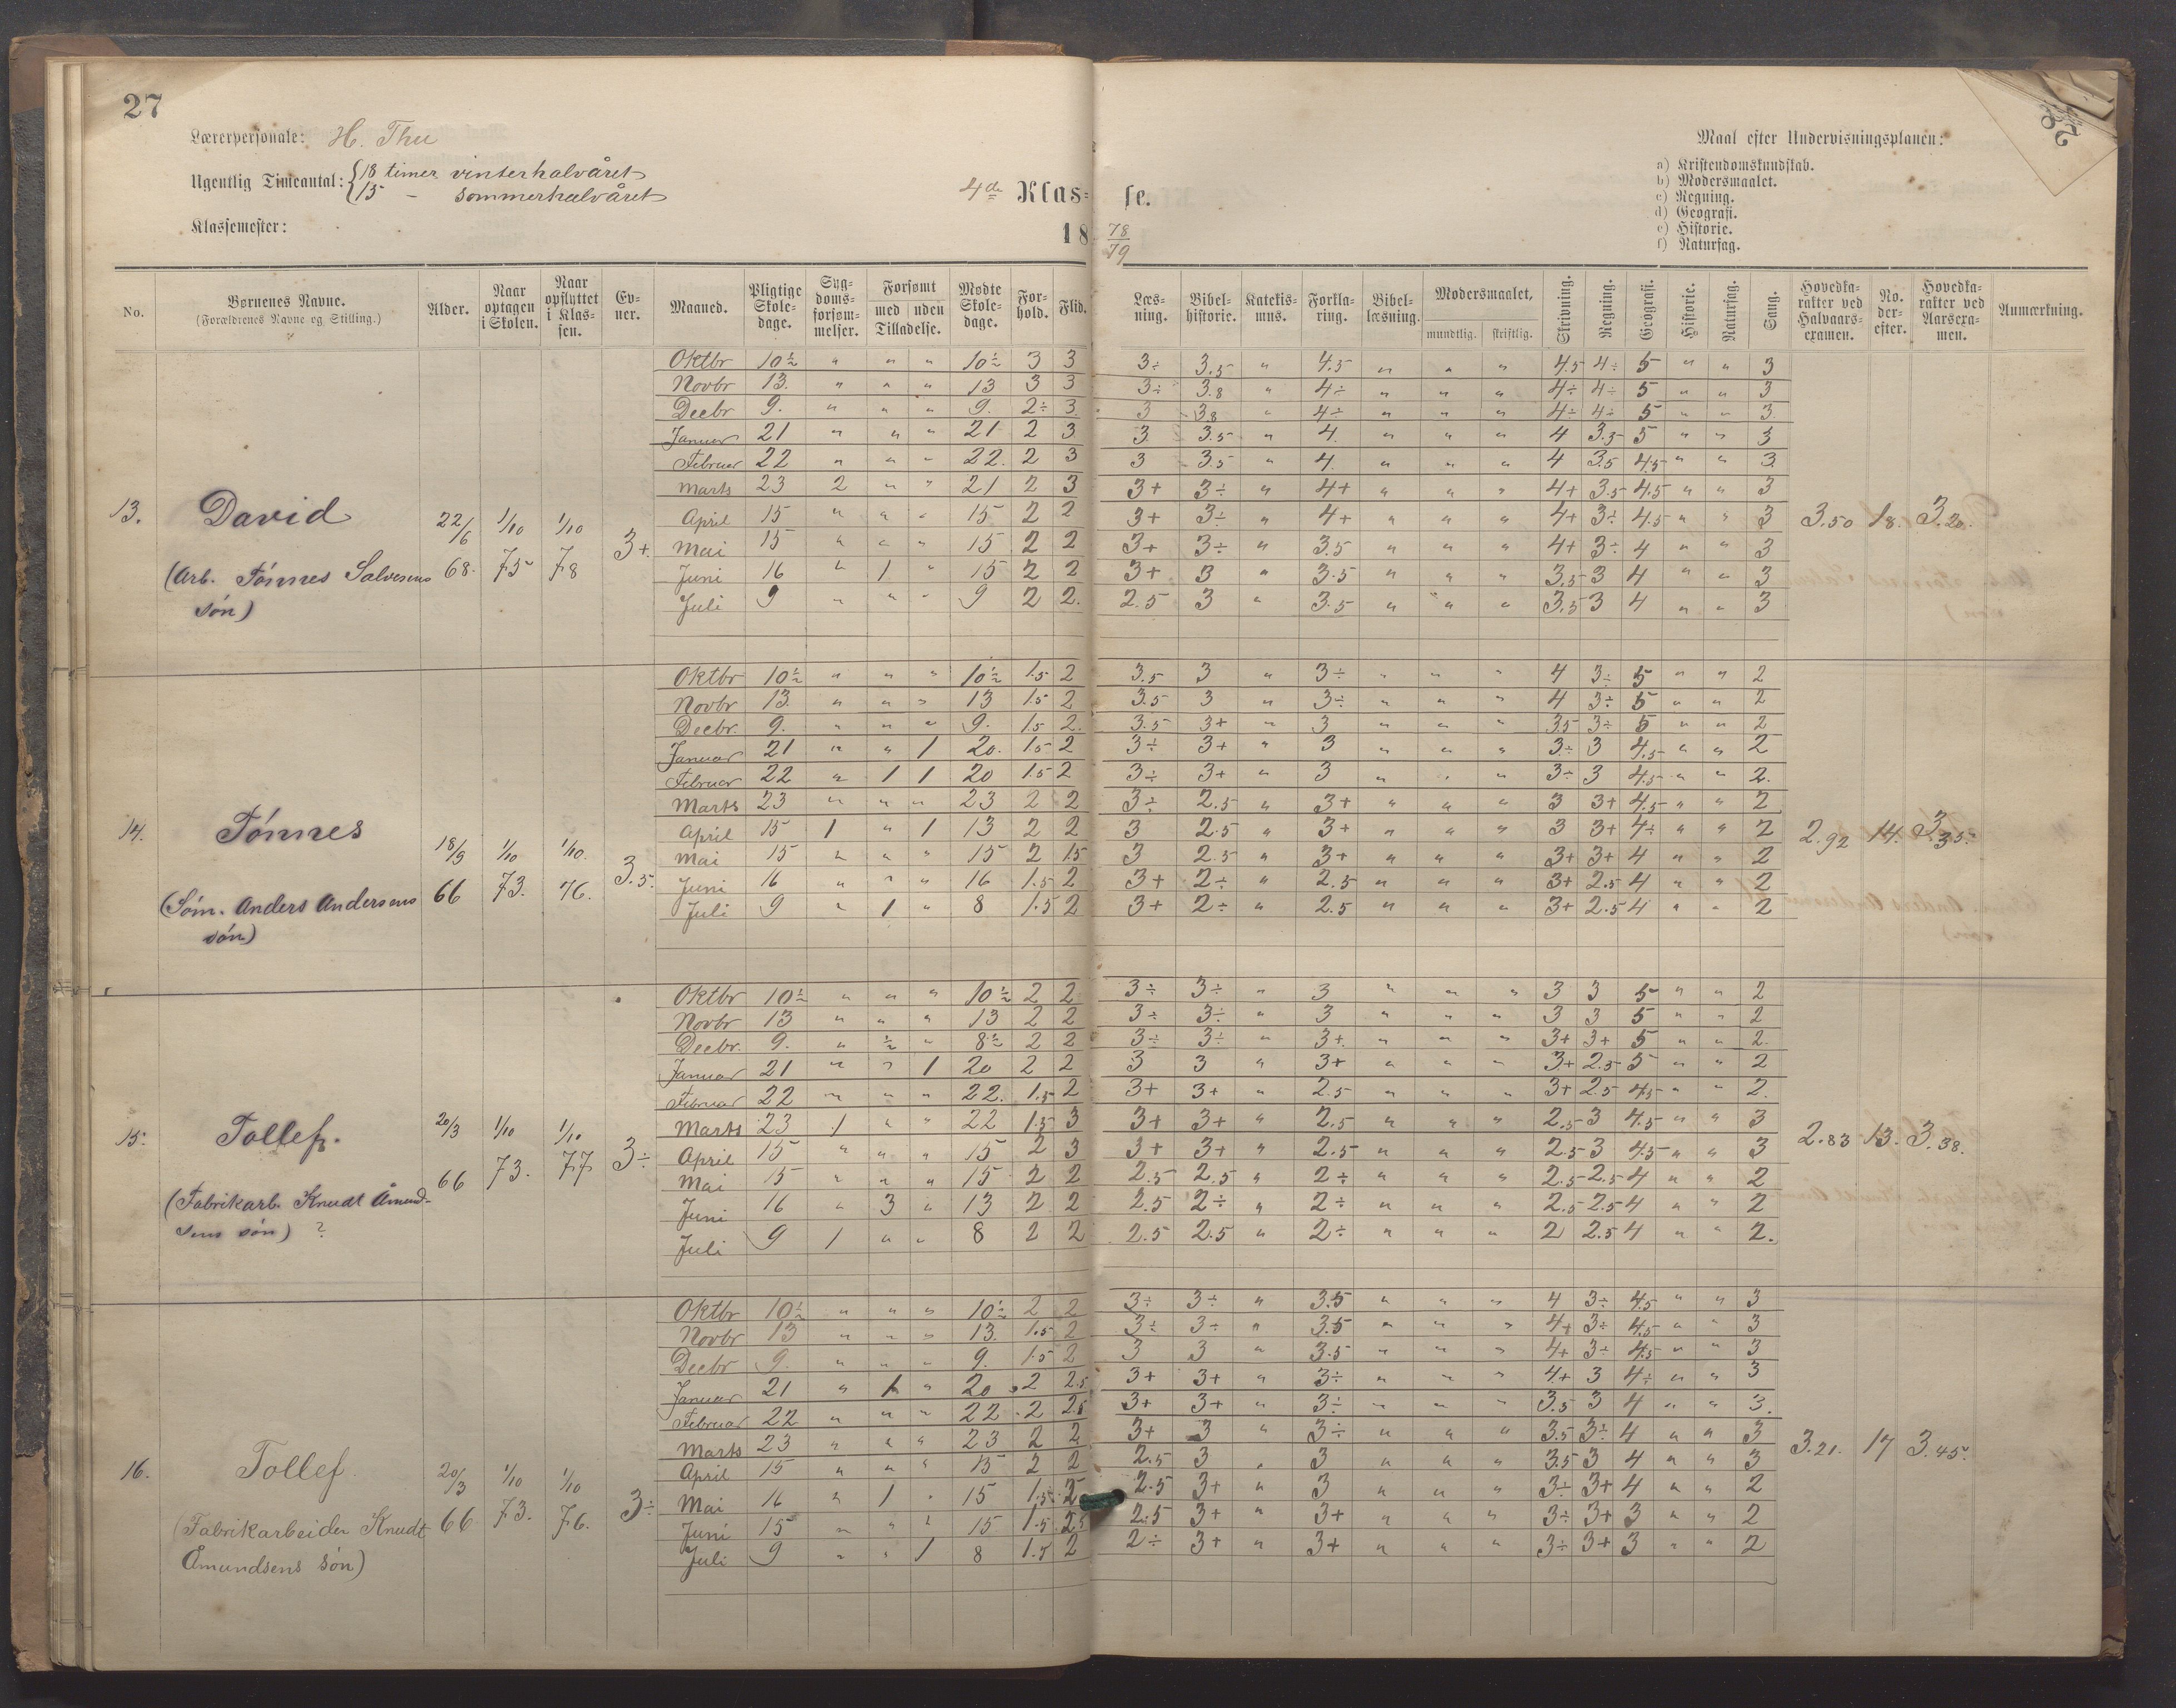 27
Lærerpersonale: H. Thu
Ugentlig Timeantal: {18 timer vinterhalvåret
{15 – sommerhalvåret
Klassemester:
4de Klas-
18
No.
Børnenes Navne.
(Forældrenes Navne og Stilling.)
Alder.
Naar optagen i Skolen.
Naar opflyttet i Klassen.
Ev-ner.
Maaned.
Pligtige Skole-dage.
Syg-doms-forsøm-melser.
Forsømt med uden Tilladelse.
Mødte Skole-dage.
For-hold.
Flid.
13. David
(Arb. Tönnes Salvesens
sön)
22/6 68. 1/10 75 1/10 78 3+
Oktbr 10½ " " " 10½ 3 3
Novbr 13. " " " 13 3 3
Decbr 9. " " " 9. 2÷ 3
Januar 21 " " " 21 2 3
Februar 22 " " " 22. 2 3
Marts 23 2 " " 21 2 3
April 15 " " " 15 2 2
Mai 15 " " " 15 2 2
Juni 16 " 1 " 15 2 2
Juli 9 " " " 9 2 2.
14. Tönnes
(Söm. Anders Andersens
sön)
18/9 66 1/10 73. 1/10. 76. 3.5.
Oktbr 10½ " " " 10½ 1.5 2
Novbr 13. " " " 13 1.5 2
Decbr. 9. " " " 9. 1.5 2.
Januar 21 " " 1 20. 1.5 2
Februar 22 " 1 1 20 1.5 2
Marts 23 " " " 23 2 2
April 15 1 " 1 13 2 2
Mai 15 " " " 15 2 1.5
Juni 16 " " " 16 1.5 2
Juli 9 " 1 " 8 1.5 2
15. Tollef.
(Fabrikarb. Knudt Åmund-
sens sön) ?
20/3 66 1/10 73. 1/10 77 3÷
Oktbr 10½ " " " 10½ 2 2
Novbr 13 " " " 13 2 2
Decbr. 9. " ½ " 8½ 2 2
Januar 21 " " 1 20 2 2
Februar 22 " " " 22. 1.5 2
Marts 23 1 " " 22 1.5 3
April 15 " " " 15 2 3
Mai 15 " " " 15 2 2
Juni 16 " 3 " 13 2 2
Juli 9 1 " " 8 2 2
16. Tollef.
(Fabrikarbeider Knudt
Åmundsens sön)
20/3 66 1/10 73. 1/10 76. 3÷
Oktbr 10½ " " " 10½ 2 2
Novbr 13 " " " 13. 1.5 2
Decbr 9. " " " 9. 1.5 2
Januar 21 " 1 " 20 2 2.5
Februar 22 " " " 22 2 2.5
Marts 23 " " " 23 2 2
April 15 " " " 15 2 2
Mai 16 " 1 " 15 1.5 2
Juni 15 " " " 15 1.5 2.5
Juli 9 " " 1 8 1.5 2
28
Maal efter Undervisningsplanen:
a) Kristendomskundskab.
b) Modersmaalet.
c) Regning.
d) Geografi.
e) Historie.
f) Naturfag.
se.
78
79
Læs-ning.
Bibel-historie.
Katekis-mus.
Forkla-ring.
Bibel-læsning.
Modersmaalet, mundtlig. skriftlig.
Skrivning.
Regning.
Geografi.
Historie.
Naturfag.
Sang.
Hovedka-rakter ved Halvaars-examen.
No. der-efter.
Hovedka-rakter ved Aarsexa-men.
Anmærkning.
3÷ 3.5 " 4.5 " " " 4.5 4÷ 5 " " 3
3÷ 3.8 " 4÷ " " " 4÷ 4÷ 5 " " 3
3 3.8 " 4÷ " " " 4÷ 4÷ 5 " " 3.
3 3.5 " 4. " " " 4 3.5 5 " " 3
3 3.5 " 4. " " " 4 3.5 4.5 " " 3.
3+ 3÷ " 4+ " " " 4+ 3.5 4.5 " " 3
3+ 3÷ " 4+ " " " 4+ 3÷ 4.5 " " 3
3+ 3÷ " 3.5 " " " 4+ 3÷ 4 " " 3
3+ 3 " 3.5 " " " 3.5 3 4 " " 3
2.5 3 " 3.5 " " " 3.5 3 4 " " 3
3.50 18. 3.20.
3.5 3 " 3÷ " " " 4 3÷ 5 " " 2
3.5 3 " 3÷ " " " 4 3÷ 5 " " 2
3.5 3+ " 3 " " " 3.5 3÷ 5 " " 2
3÷ 3+ " 3 " " " 3÷ 3 4.5 " " 2
3÷ 3+ " 3 " " " 3÷ 3 4.5 " " 2.
3÷ 2.5 " 3+ " " " 3 3+ 4.5 " " 2
3 2.5 " 3+ " " " 3 3+ 4÷ " " 2
3 2.5 " 3+ " " " 3+ 3+ 4 " " 2
3+ 2÷ " 2.5 " " " 3+ 2.5 4 " " 2
3+ 2÷ " 2.5 " " " 3+ 2.5 4 " " 2
2.92 14. 3.35.
3÷ 3÷ " 3 " " " 3 3 5 " " 2
3÷ 3÷ " 3 " " " 3 3 5 " " 2
3÷ 3÷ " 3+ " " " 3+ 3+ 5 " " 2.
3 3 " 3+ " " " 3+ 2.5 5 " " 2
3+ 3+ " 2.5 " " " 3+ 2.5 4.5 " " 2.
3+ 3+ " 2.5 " " " 2.5 3 4.5 " " 3
3+ 3+ " 2.5 " " " 2.5 3 4.5 " " 3
2.5 2.5 " 2÷ " " " 2.5 2.5 4 " " 2
2.5 2÷ " 2÷ " " " 2.5 2.5 4 " " 2
2.5 2.5 " 2÷ " " " 2 2.5 4 " " 2.
2.83 13. 3.38.
3÷ 3÷ " 3.5 " " " 4 3÷ 4.5 " " 3
3÷ 3÷ " 3.5 " " " 4+ 3÷ 4.5 " " 3
3 3 " 3.5 " " " 4+ 3÷ 4.5 " " 3
3+ 3+ " 3÷ " " " 4+ 3 4÷ " " 3
3+ 3+ " 3÷ " " " 3.5 3 4 " " 3.
3+ 3 " 3÷ " " " 3.5 3÷ 4 " " 3
2.5 3 " 3 " " " 3.5 3 4 " " 3
2.5 3+ " 3 " " " 3÷ 3+ 4 " " 2
2.5 3+ " 3+ " " " 3÷ 3+ 3 " " 2
2÷ 3+ " 3+ " " " 3÷ 3+ 3 " " 2
3.21. 17 3.45.